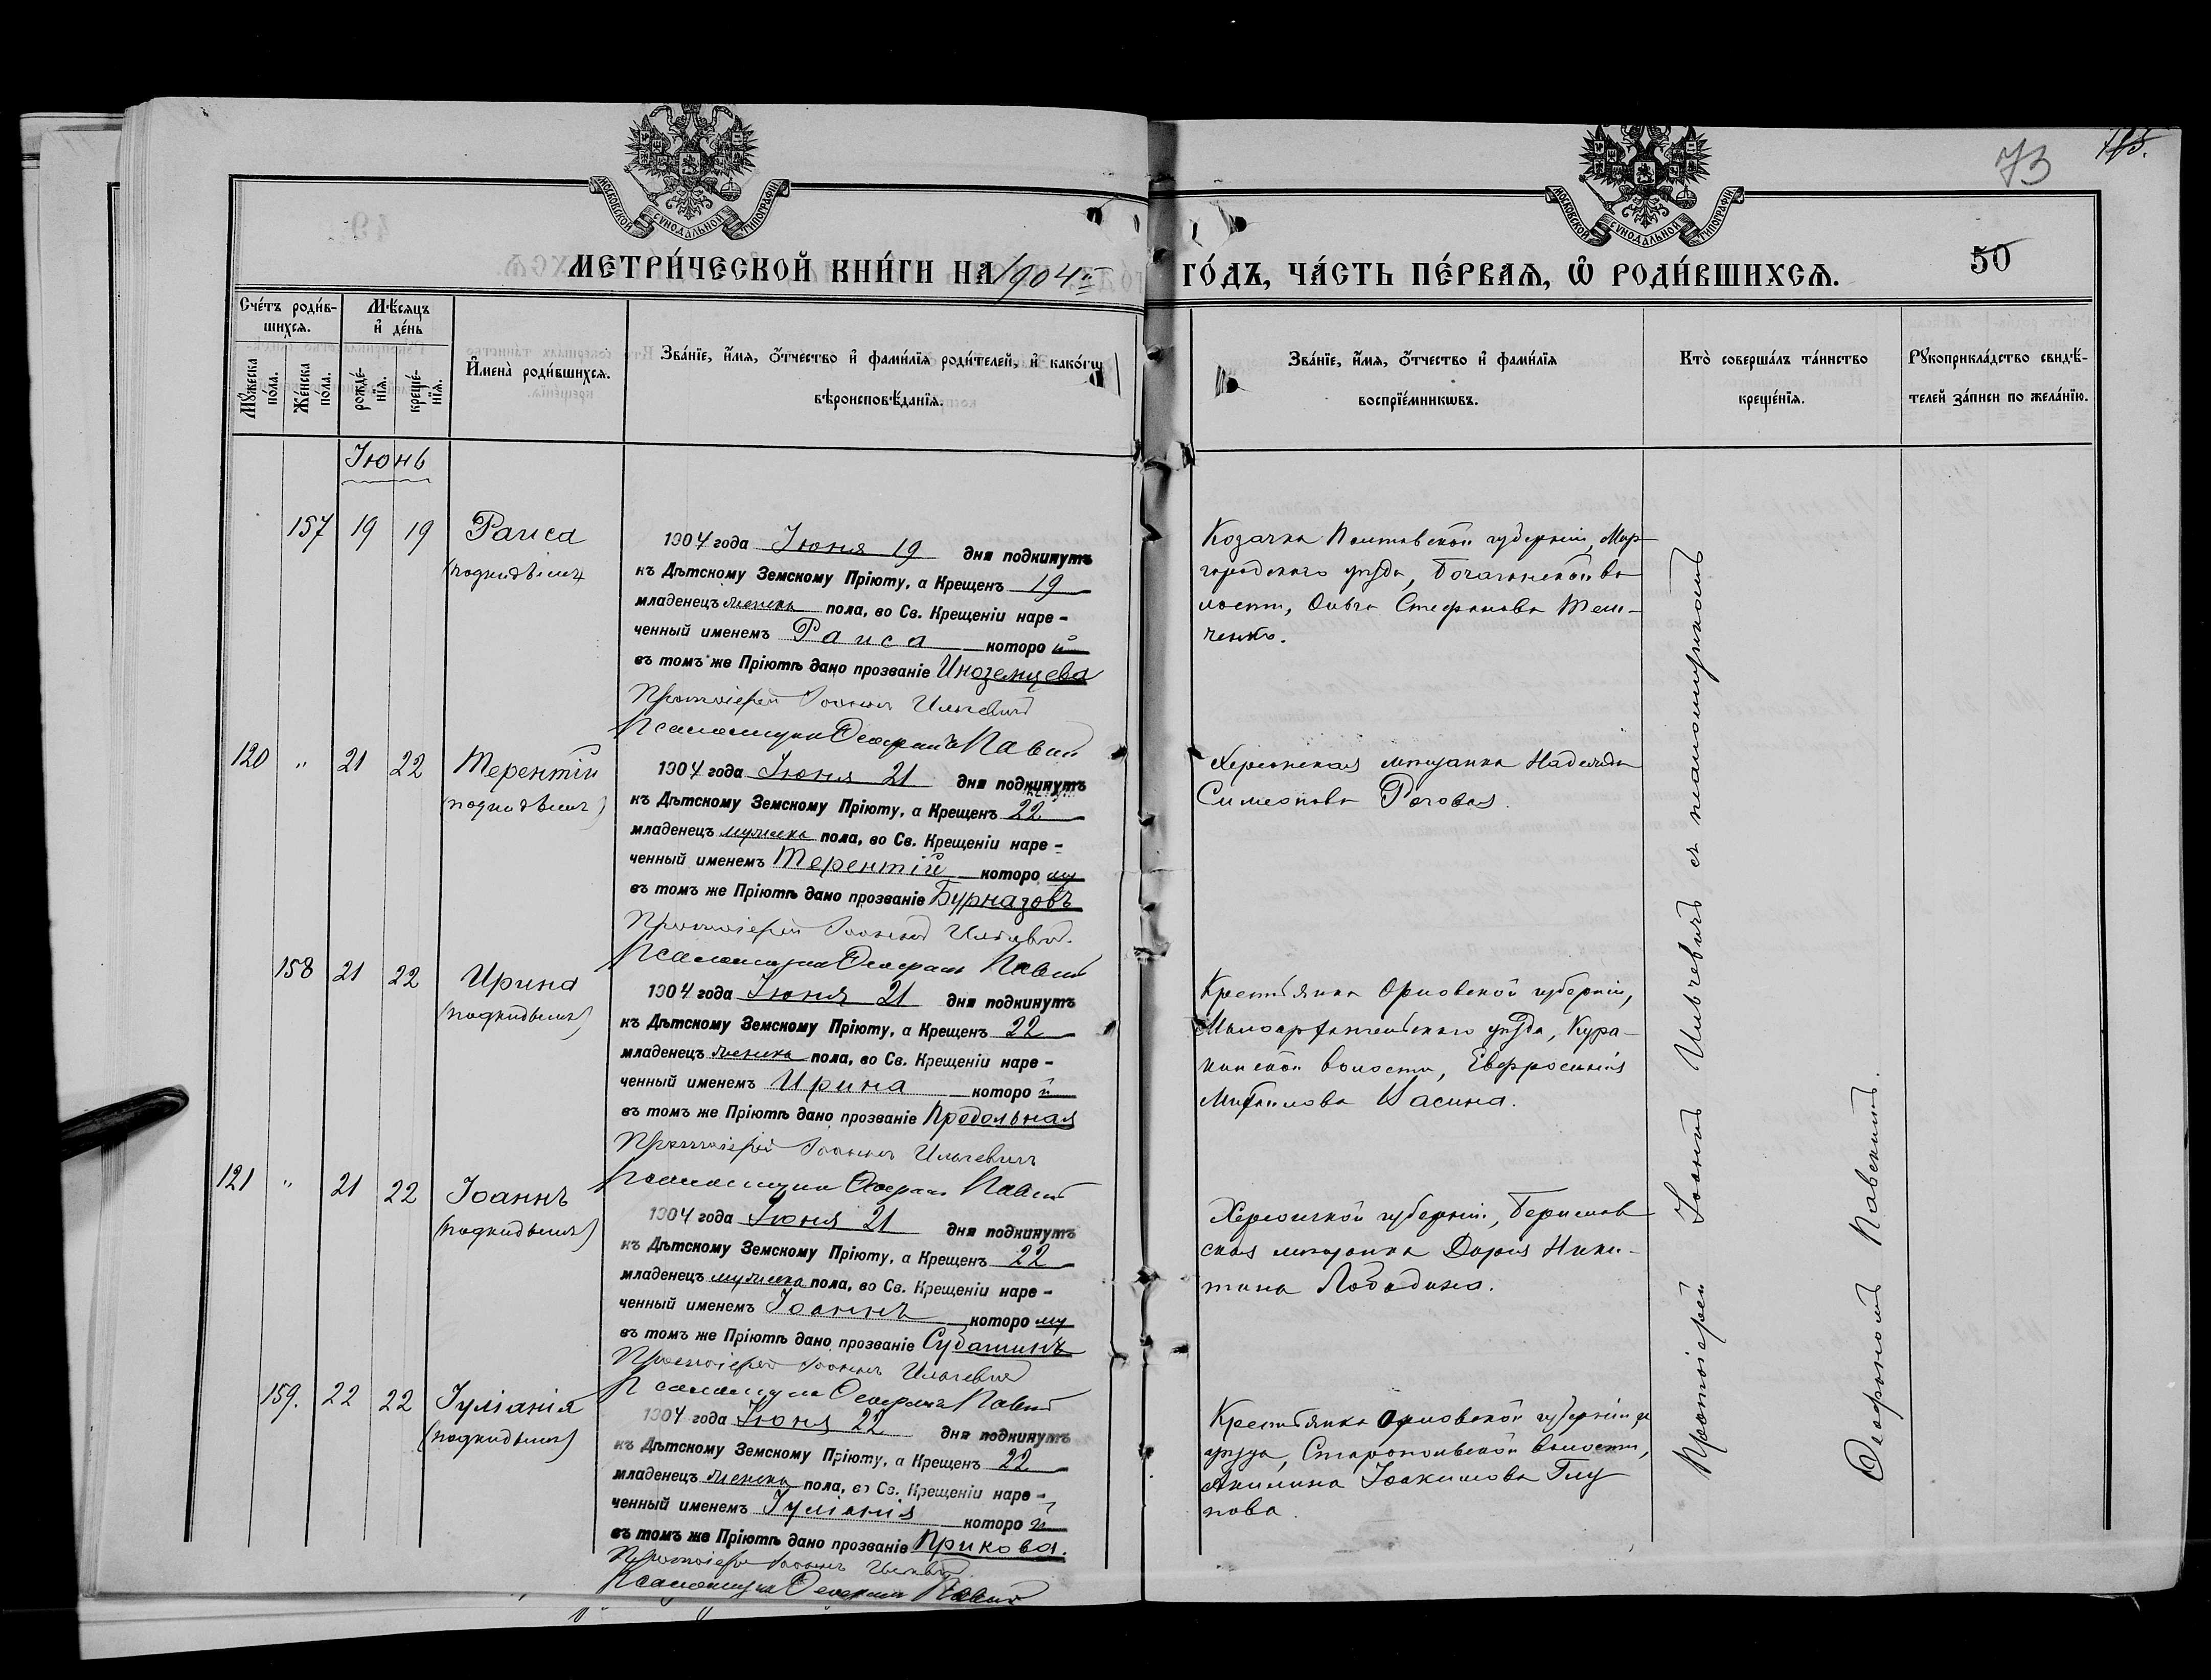 МОСКОВСКОЙ СѴНОДАЛЬНОЙ ТИПОГРАФІИ
МОСКОВСКОЙ СѴНОДАЛЬНОЙ ТИПОГРАФІИ
73
50
МЕТРИ́ЧЕСКОЙ КНИ́ГИ НА 1904й ГО́ДЪ, ЧА́СТЬ ПЕ́РВАѦ, Ѡ҆ РОДИ́ВШИХСѦ.
Счéтъ роди́в-
шихсѧ.
Мꙋ́жеска
по́ла.
Же́нска
по́ла.
Мѣ́сѧцъ
и҆ де́нь
рожде́-
нїѧ.
креще́-
нїѧ.
И҆мена̀ роди́вшихсѧ.
Зва́нїе, и҆́мѧ, ѻ҆́тчество и҆ фами́лїѧ роди́телей, и҆ како́гѡ
вѣроисповѣ́данїѧ.
Зва́нїе, и҆́мѧ, ѻ҆́тчество и҆ фами́лїѧ
воспрїе́мникѡвъ.
Кто̀ соверша́лъ та́инство
креще́нїѧ.
Рꙋкоприкла́дство свидѣ́-
телей за́писи по жела́нїю.
Іюнь
157 19 19 Раиса
(подкидышъ)
1904 года Іюня 19 дня подкинутъ
къ Дѣтскому Земскому Пріюту, а Крещенъ 19
младенецъ женска пола, во Св. Крещеніи наре-
ченный именемъ Раиса которой
въ томъ же Пріютѣ дано прозваніе Иноземцева
Протоіерей Іоаннъ Ильчевичъ
Псаломщикъ Ѳеофанъ Павскій
Козачка Полтавской губерніи, Мир-
городскаго уѣзда, во
лости, Ольга Стефанова
ченко.
120 " 21 22 Терентій
(подкидышъ)
1904 года Іюня 21 дня подкинутъ
къ Дѣтскому Земскому Пріюту, а Крещенъ 22
младенецъ мужска пола, во Св. Крещеніи наре-
ченный именемъ Терентій которому
въ томъ же Пріютѣ дано прозваніе Бурназовъ
Протоіерей Іоаннъ Ильчевичъ
Псаломщикъ Ѳеофанъ Павскій
Херсонская мѣщанка Надежда
Симеонова Роговая.
158 21 22 Ирина
(подкидышъ)
1904 года Іюня 21 дня подкинутъ
къ Дѣтскому Земскому Пріюту, а Крещенъ 22
младенецъ женска пола, во Св. Крещеніи наре-
ченный именемъ Ирина которой
въ томъ же Пріютѣ дано прозваніе Продольная
Протоіерей Іоаннъ Ильчевичъ
Псаломщикъ Ѳеофанъ Павскій
Крестьянка Орловской губерніи,
Малоархангельскаго уѣзда, Кура-
кинской волости, Евфросинія
Михаилова Касина.
121 " 21 22 Іоаннъ
(подкидышъ)
1904 года Іюня 21 дня подкинутъ
къ Дѣтскому Земскому Пріюту, а Крещенъ 22
младенецъ мужска пола, во Св. Крещеніи наре-
ченный именемъ Іоаннъ которому
въ томъ же Пріютѣ дано прозваніе Субашинъ
Протоіерей Іоаннъ Ильчевичъ
Псаломщикъ Ѳеофанъ Павскій
Херсонской губерніи, Берислав
ская мѣщанка Дарія Ники-
тина Лободина.
159. 22 22 Іуліанія
(подкидышъ)
1904 года Іюня 22 дня подкинутъ
къ Дѣтскому Земскому Пріюту, а Крещенъ 22
младенецъ женска пола, во Св. Крещеніи наре-
ченный именемъ Іуліанія которой
въ томъ же Пріютѣ дано прозваніе Прикова.
Протоіерей Іоаннъ Ильчевичъ
Псаломщикъ Ѳеофанъ Павскій
Крестьянка Орловской губерніи и
уѣзда, волости,
Акилина Іоакимова Глу
хова.
Протоіерей Іоаннъ Ильчевичъ съ псаломщикомъ
Ѳеофаномъ Павскимъ.